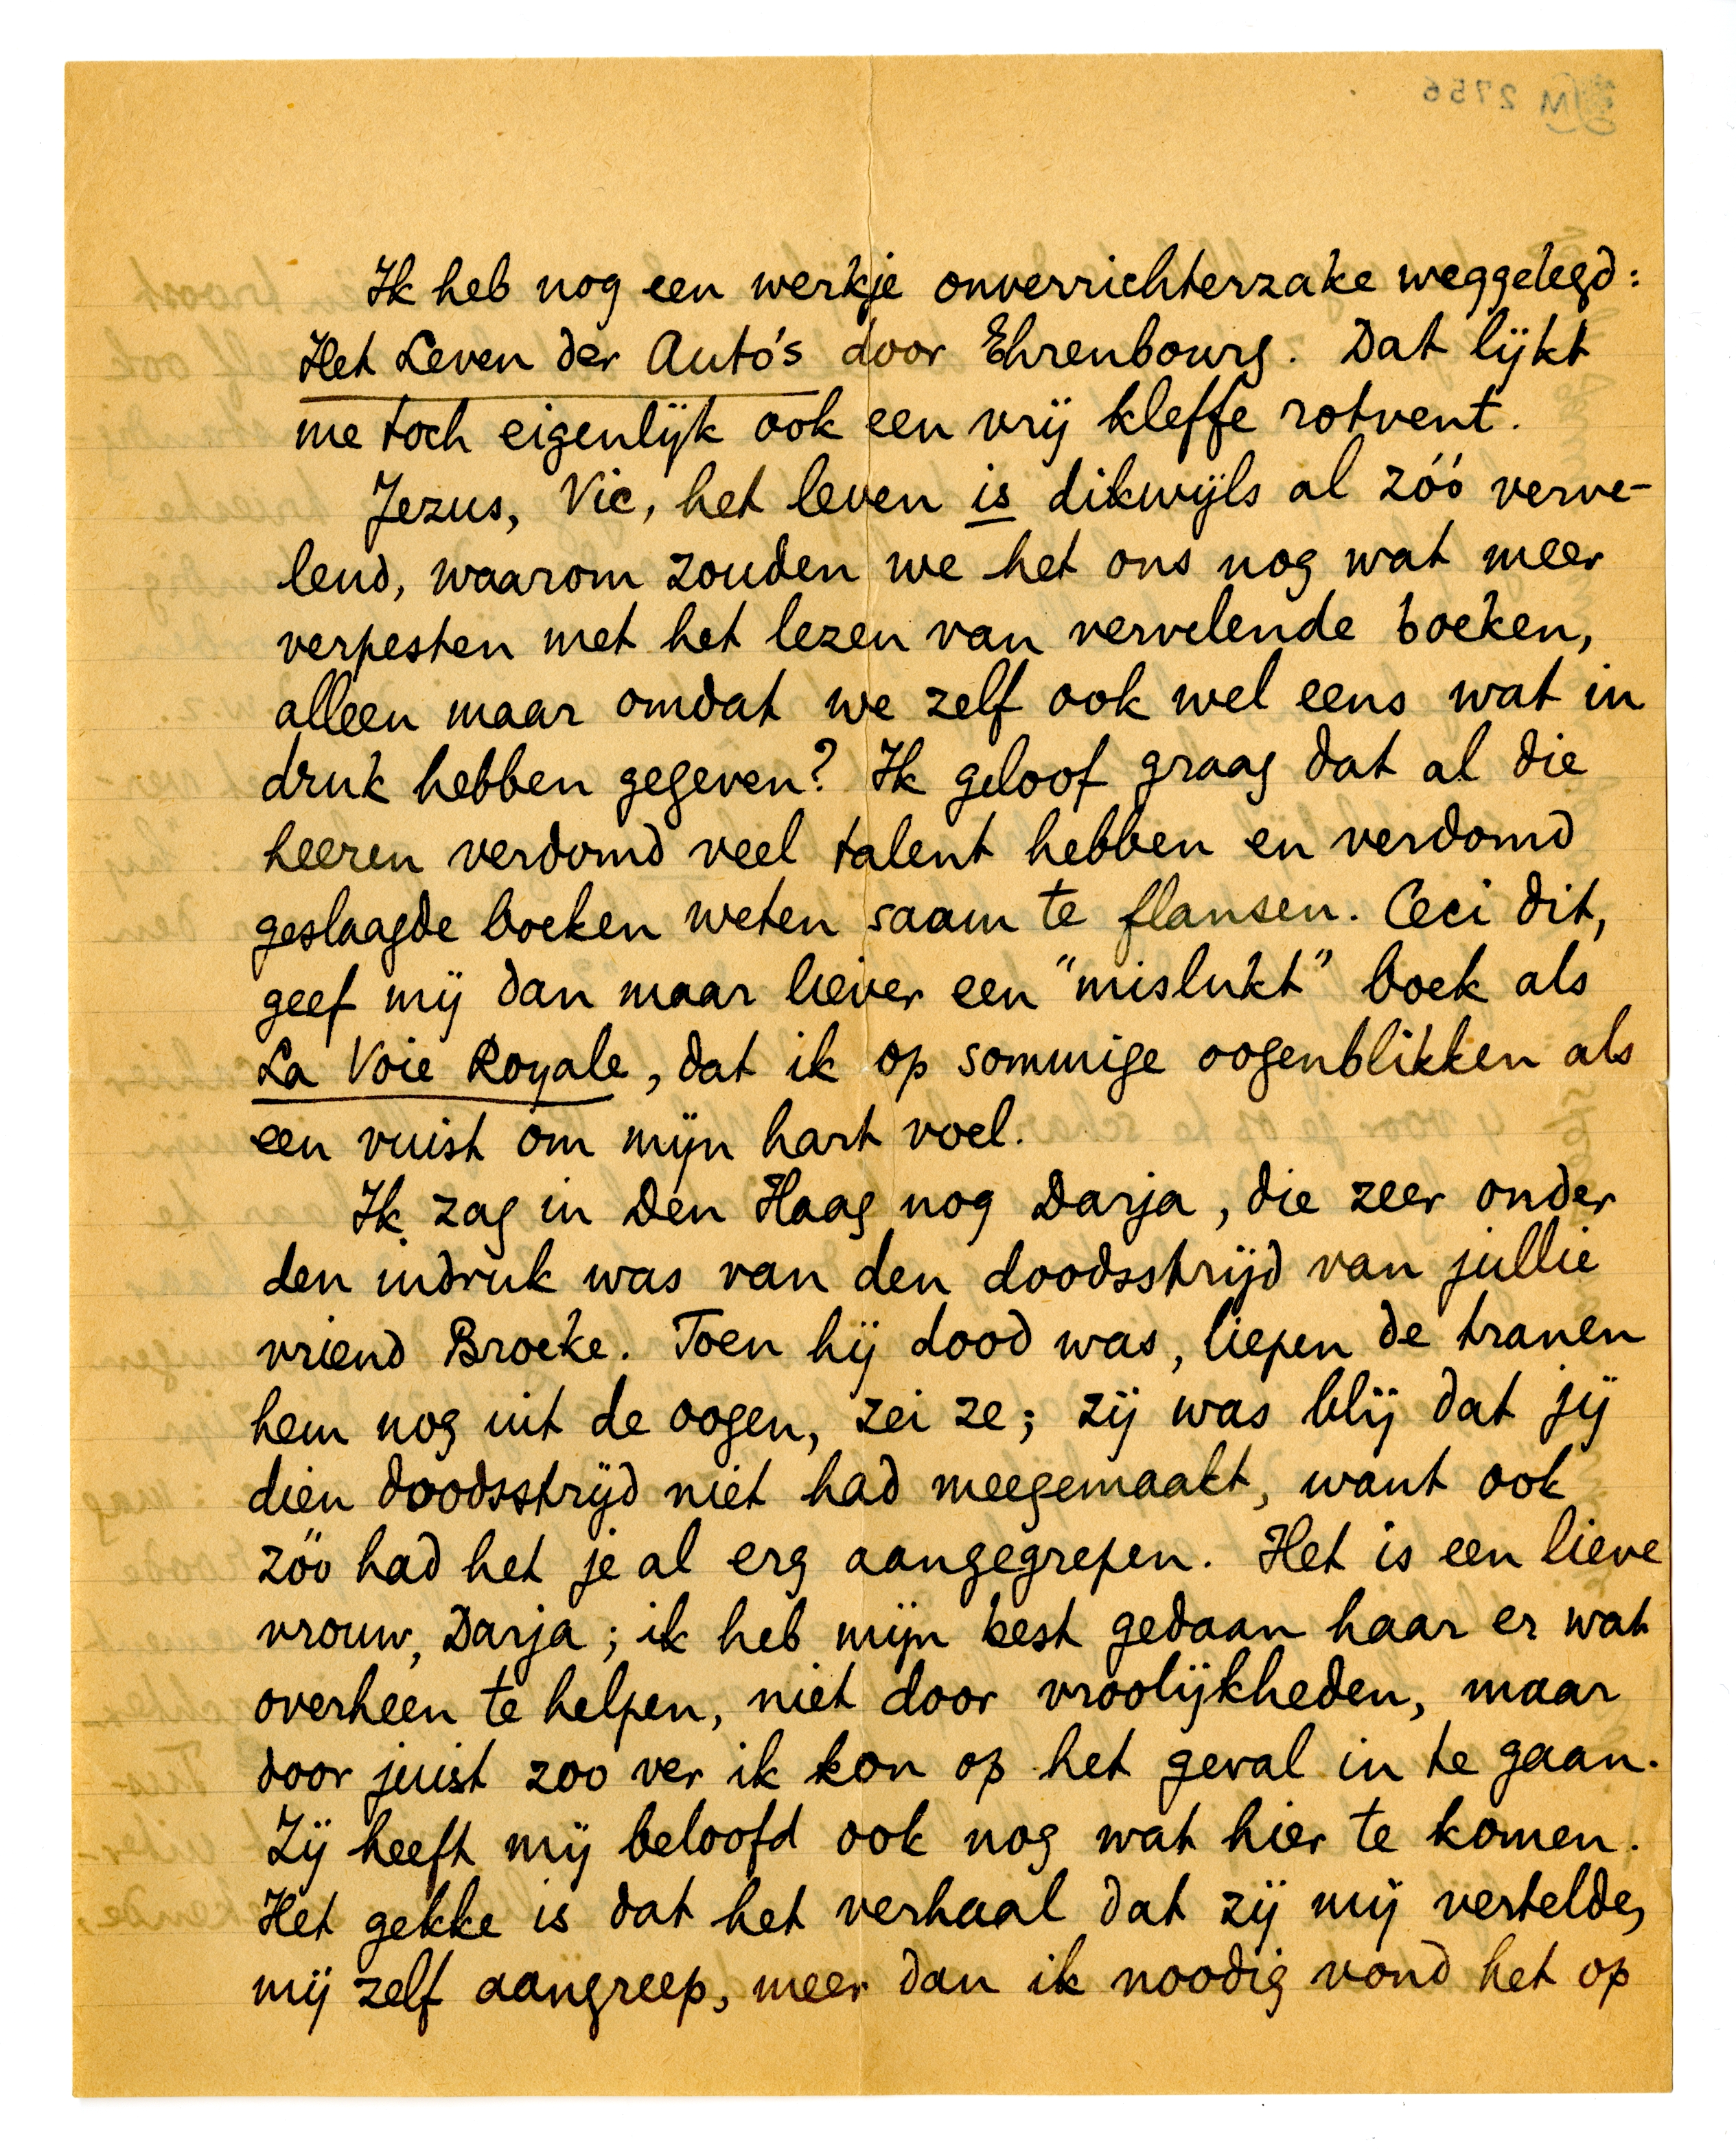 M 2756
Ik heb nog een werkje onverrichterzake weggelegd:
Het Leven der Auto's door Ehrenbourg. Dat lijkt
me toch eigenlijk ook een vrij kleffe rotvent.
Jezus, Vic, het leven is dikwijls al zóó verve-
lend, waarom zouden we het ons nog wat meer
verpesten met het lezen van vervelende boeken,
alleen maar omdat we zelf ook wel eens wat in
druk hebben gegeven? Ik geloof graag dat al die
heeren verdomd veel talent hebben en verdomd
geslaagde boeken weten saam te flansen. Ceci dit,
geef mij dan maar liever een "mislukt" boek als
La Voie Royale, dat ik op sommige oogenblikken als
een vuist om mijn hart voel.
Ik zag in Den Haag nog Darja, die zeer onder
den indruk was van den doodsstrijd van jullie
vriend Broeke. Toen hij dood was, liepen de tranen
hem nog uit de oogen, zei ze; zij was blij dat jij
dien doodsstrijd niet had meegemaakt, want ook
zóo had het je al erg aangegrepen. Het is een lieve
vrouw, Darja; ik heb mijn best gedaan haar er wat
overheen te helpen, niet door vroolijkheden, maar
door juist zoo ver ik kon op het geval in te gaan.
Zij heeft mij beloofd ook nog wat hier te komen.
Het gekke is dat het verhaal dat zij mij vertelde,
mij zelf aangreep, meer dan ik noodig vond het op